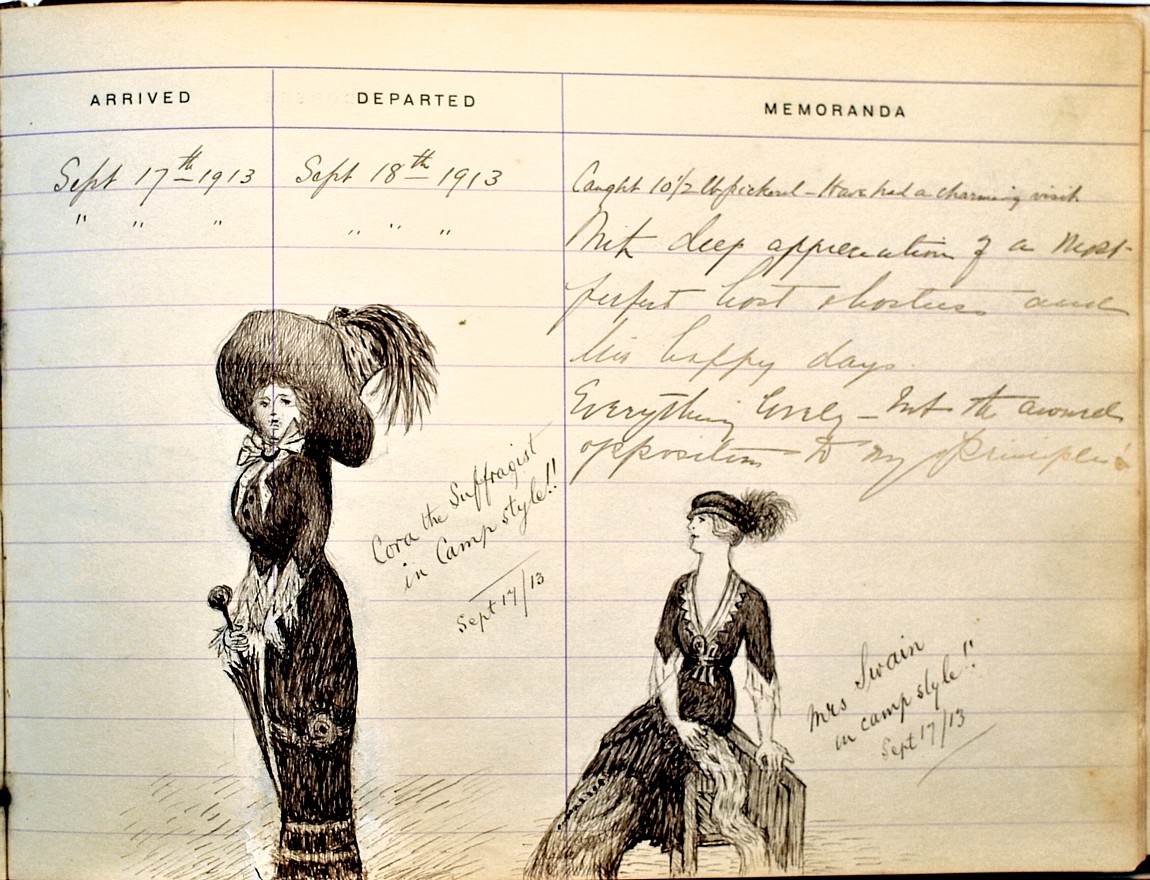 ARRIVED DEPARTED MEMORANDA
Sept 17th 1913 Sept 18th 1913 Caught 10 1/2 lb pickerel - Have had a charming visit
" " " " " " With deep appreciation of a most
perfect host & hostess and
happy days.
Everything lovely - but the avowed
opposition to my principles!
Cora the Suffragist
in Camp style!!
Sept 17/13
Mrs Swain
in camp style!!
Sept 17/13